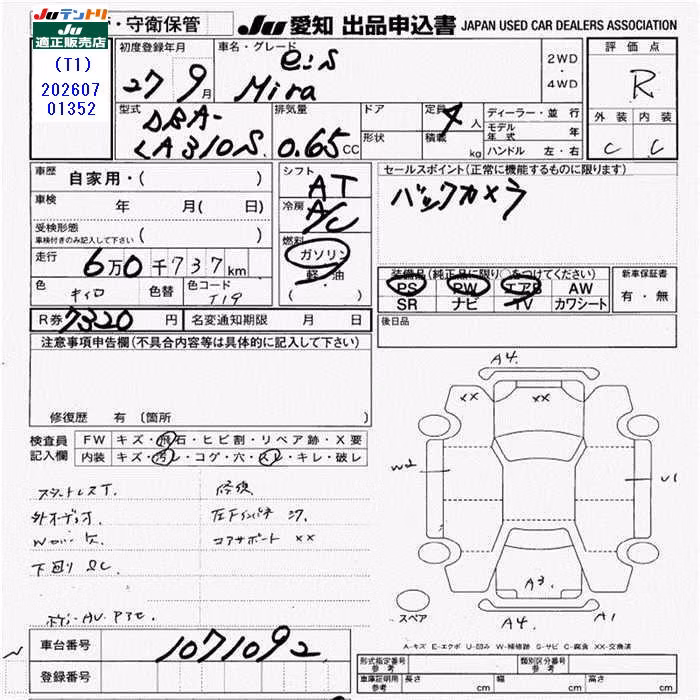 Juテントリ
Ju
適正販売店
(T1)
202607
01352
・守衛保管
Ju 愛知 出品申込書 JAPAN USED CAR DEALERS ASSOCIATION
初度登録年月
27 9月
車名・グレード
e:S
Mira
2WD
・
4WD
評価点
R
外装 内装
C C
型式
DBA-
LA310S
排気量
0.65 CC
ドア
形状
定員 4 人
積載 kg
ディーラー・並行
モデル年式 年
ハンドル 左・右
車歴
自家用・( )
車検
年 月( 日)
受検形態
車検付きのみ記入して下さい ( )
走行
6万0千737km
色
キイロ
色替
色コード
T19
シフト
AT
冷房
A/C
燃料
ガソリン
軽・油
( )
セールスポイント(正常に機能するものに限ります)
バックカメラ
装備品(純正品に限り○をつけてください)
PS PW エアB AW
SR ナビ TV カワシート
新車保証書
有・無
後日品
R券 7320 円
名変通知期限 月 日
注意事項申告欄(不具合内容等は具体的に記入して下さい)
修復歴 有 〔箇所 〕
検査員
記入欄
FW キズ・飛石・ヒビ割・リペア跡・X要
内装 キズ・汚レ・コゲ・穴・スレ・キレ・破レ
外オーディオ
下回りSC
修復
コアサポート XX
A4.
XX XX
W2
U1
A3.
A4.
A1
スペア
A-キズ E-エクボ U-凹み W-補修跡 S-サビ C-腐食 XX-交換済
車台番号
1071092
登録番号
形式指定番号 参考
類別区分番号 参考
車庫証明用 参考
長さ cm
幅 cm
高さ cm